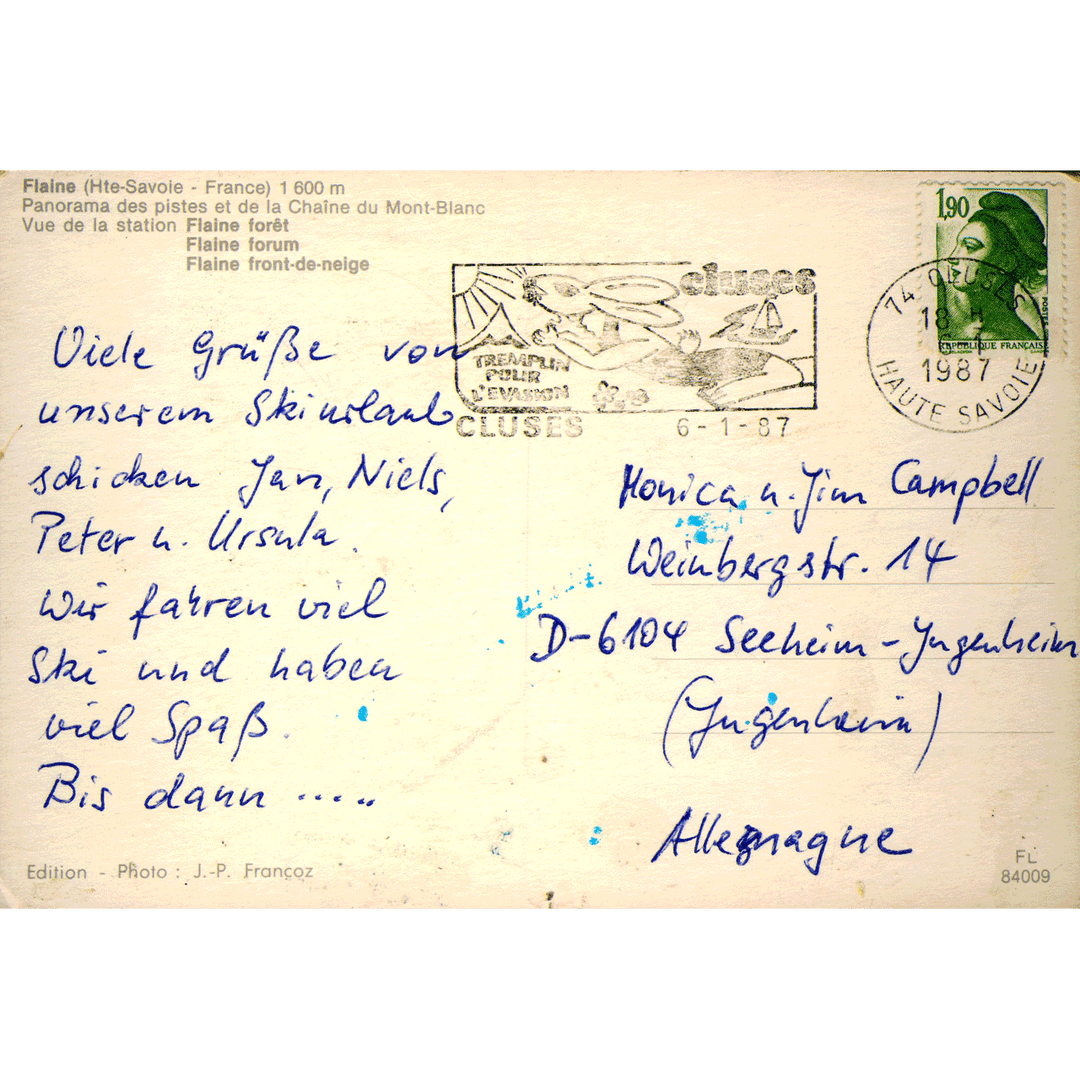 Flaine (Hte-Savoie - France) 1 600 m
Panorama des pistes et de la Chaîne du Mont-Blanc
Vue de la station Flaine forêt
Flaine forum
Flaine front-de-neige
Viele Grüße von
unserem Skiurlaub
schicken Jan, Niels,
Peter u. Ursula.
Wir fahren viel
Ski und haben
viel Spaß.
Bis dann .....
Edition - Photo : J.-P. Françoz
cluses
TREMPLIN
POUR
L'EVASION
CLUSES
6-1-87
1,90
POSTES
REPUBLIQUE FRANÇAISE
74 CLUSES
18 H
6-1
1987
HAUTE SAVOIE
Monica u. Jim Campbell
Weinbergstr. 14
D-6104 Seeheim-Jugenheim
(Jugenheim)
Allemagne
FL
84009